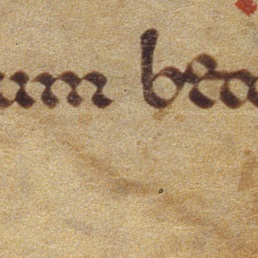 um bea